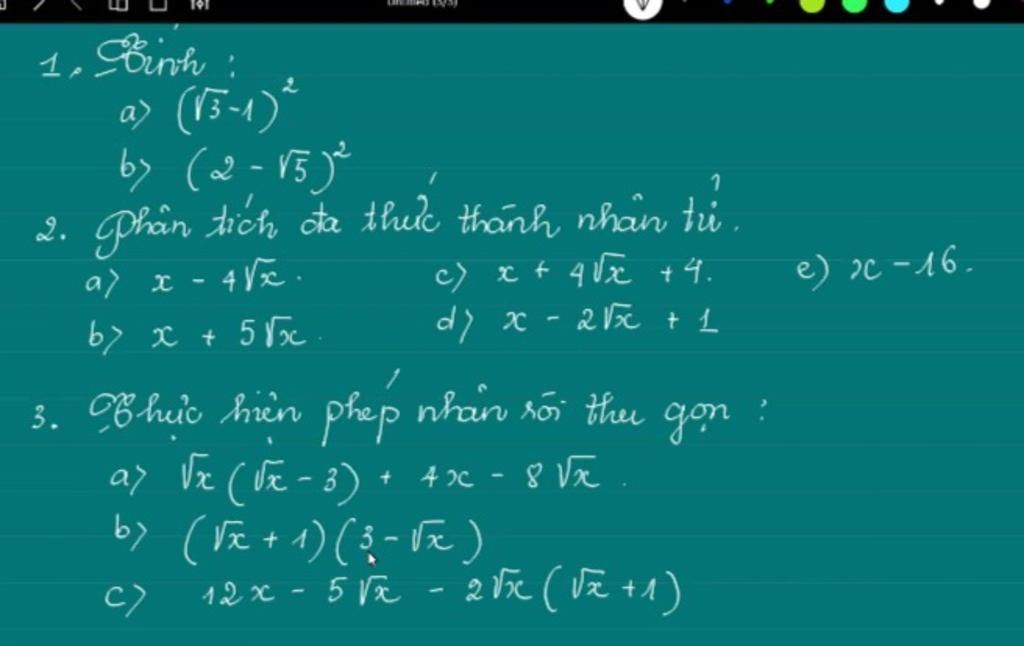 Untitled (3/3)
1. Tính :
a) (√3-1)²
b) (2 - √5)²
2. Phân tích đa thức thành nhân tử.
a) x - 4√x. c) x + 4√x + 4. e) x - 16.
b) x + 5√x. d) x - 2√x + 1
3. Thực hiện phép nhân rồi thu gọn :
a) √x (√x - 3) + 4x - 8√x.
b) (√x + 1)(3 - √x)
c) 12x - 5√x - 2√x (√x + 1)